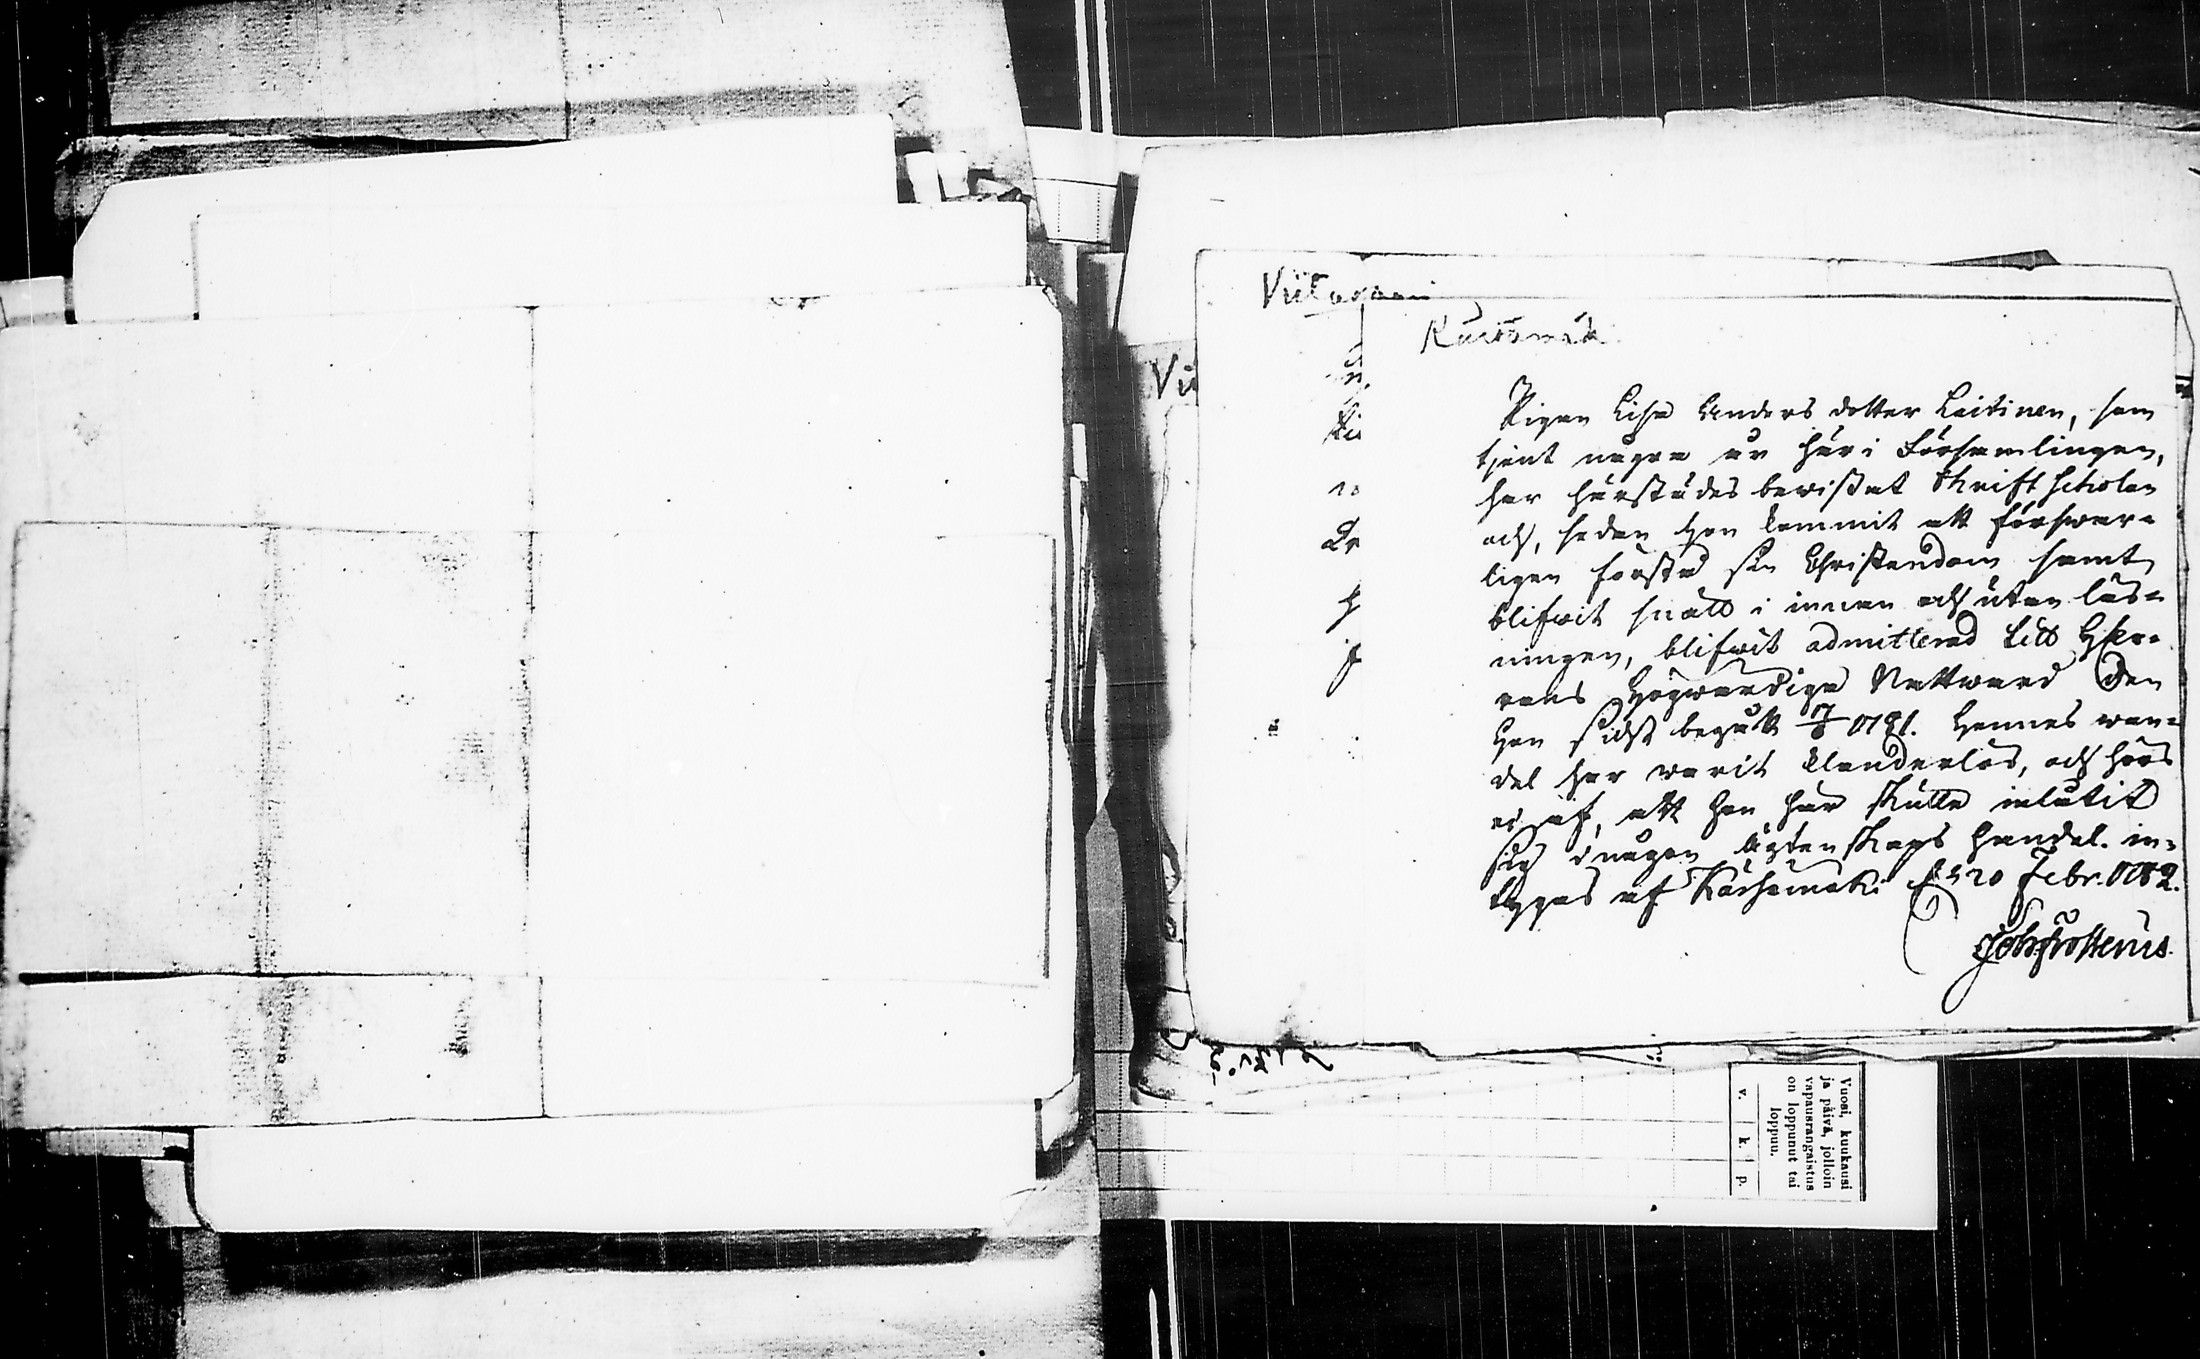 Viitasaari
Vii
Pigan Lisa Anders dotter Laitinen, som
tjent någre år här i Församlingen,
har härstädes bewistat Skriftscholan
och, sedan hon kommit att förswar-
ligen förstå sin Christendom samt
blifwit snäll i innan och utan läs-
ningen, blifwit admitterad till HEr-
rans Högwerdiga Nattward den
hon sidst begått 1781. Hennes wan-
del har warit klanderlös, och hörs
ej af, att hon här skulle inlåtit
sig i någon ägtenskaps handel. in-
tygas af Kärsämäki d. 20 Febr. 1782.
Joh: Frosterus.
Vuosi, kuukausi
ja päivä, jolloin
vapausrangaistus
on loppunut tai
loppuu.
v. k. p.